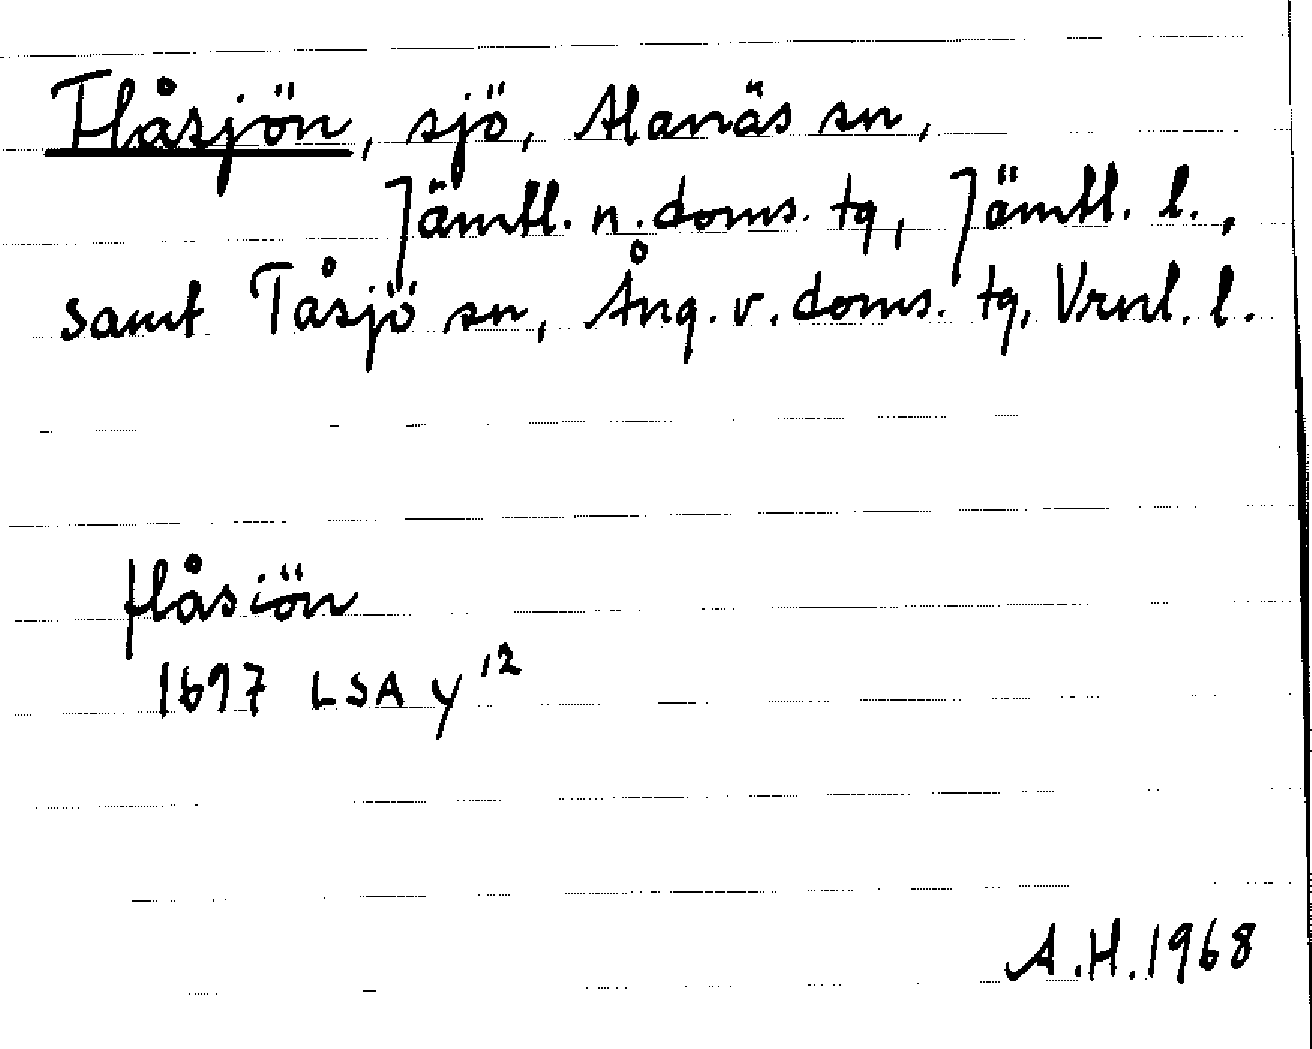 Flåsjön, sjö, Alanäs sn,
Jämtl. n. doms. tg, Jämtl. l.,
samt Tåsjö sn, Ång. v. doms. tg, Vrnl. l.
flåsiön
1697 LSA y 12
A.H. 1968